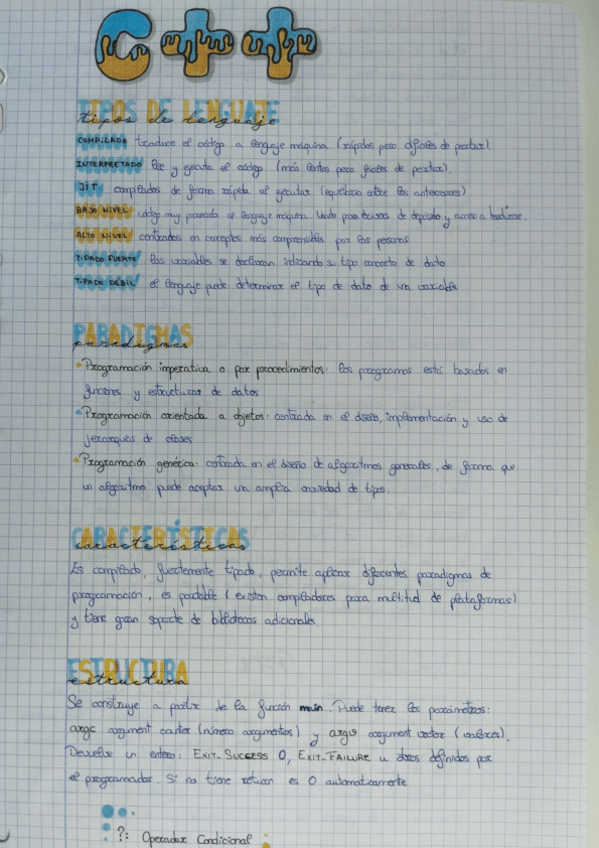 C++
TIPOS DE LENGUAJE
tipos de lenguaje
COMPILADO traduce el código a lenguaje máquina (rápidos pero difíciles de portar).
INTERPRETADO lee y ejecuta el código (más lentos pero fáciles de portar).
JIT compilados de forma rápida al ejecutar (equilibrio entre los anteriores)
BAJO NIVEL código muy parecido al lenguaje máquina. Usado para drivers de dispositivo y acceso a hardware.
ALTO NIVEL centrados en conceptos más comprensibles por las personas
TIPADO FUERTE las variables se declaran indicando su tipo concreto de dato
TIPADO DÉBIL el lenguaje puede determinar el tipo de dato de una variable
PARADIGMAS
paradigmas
Programación imperativa o por procedimientos: los programas está basados en
funciones y estructuras de datos
Programación orientada a objetos: centrada en el diseño, implementación y uso de
jerarquías de clases
Programación genérica: centrada en el diseño de algoritmos generales, de forma que
un algoritmo puede aceptar una amplia variedad de tipos.
CARACTERÍSTICAS
características
Es compilado, fuertemente tipado, permite aplicar diferentes paradigmas de
programación, es portable (existen compiladores para multitud de plataformas)
y tiene gran soporte de bibliotecas adicionales.
ESTRUCTURA
estructura
Se construye a partir de la función main. Puede tener los parámetros:
argc argument counter (número argumentos) y argv argument vector (valores).
Devuelve un entero: EXIT_SUCCESS 0, EXIT_FAILURE u otros definidos por
el programador. Si no tiene return es 0 automáticamente
?: Operador Condicional